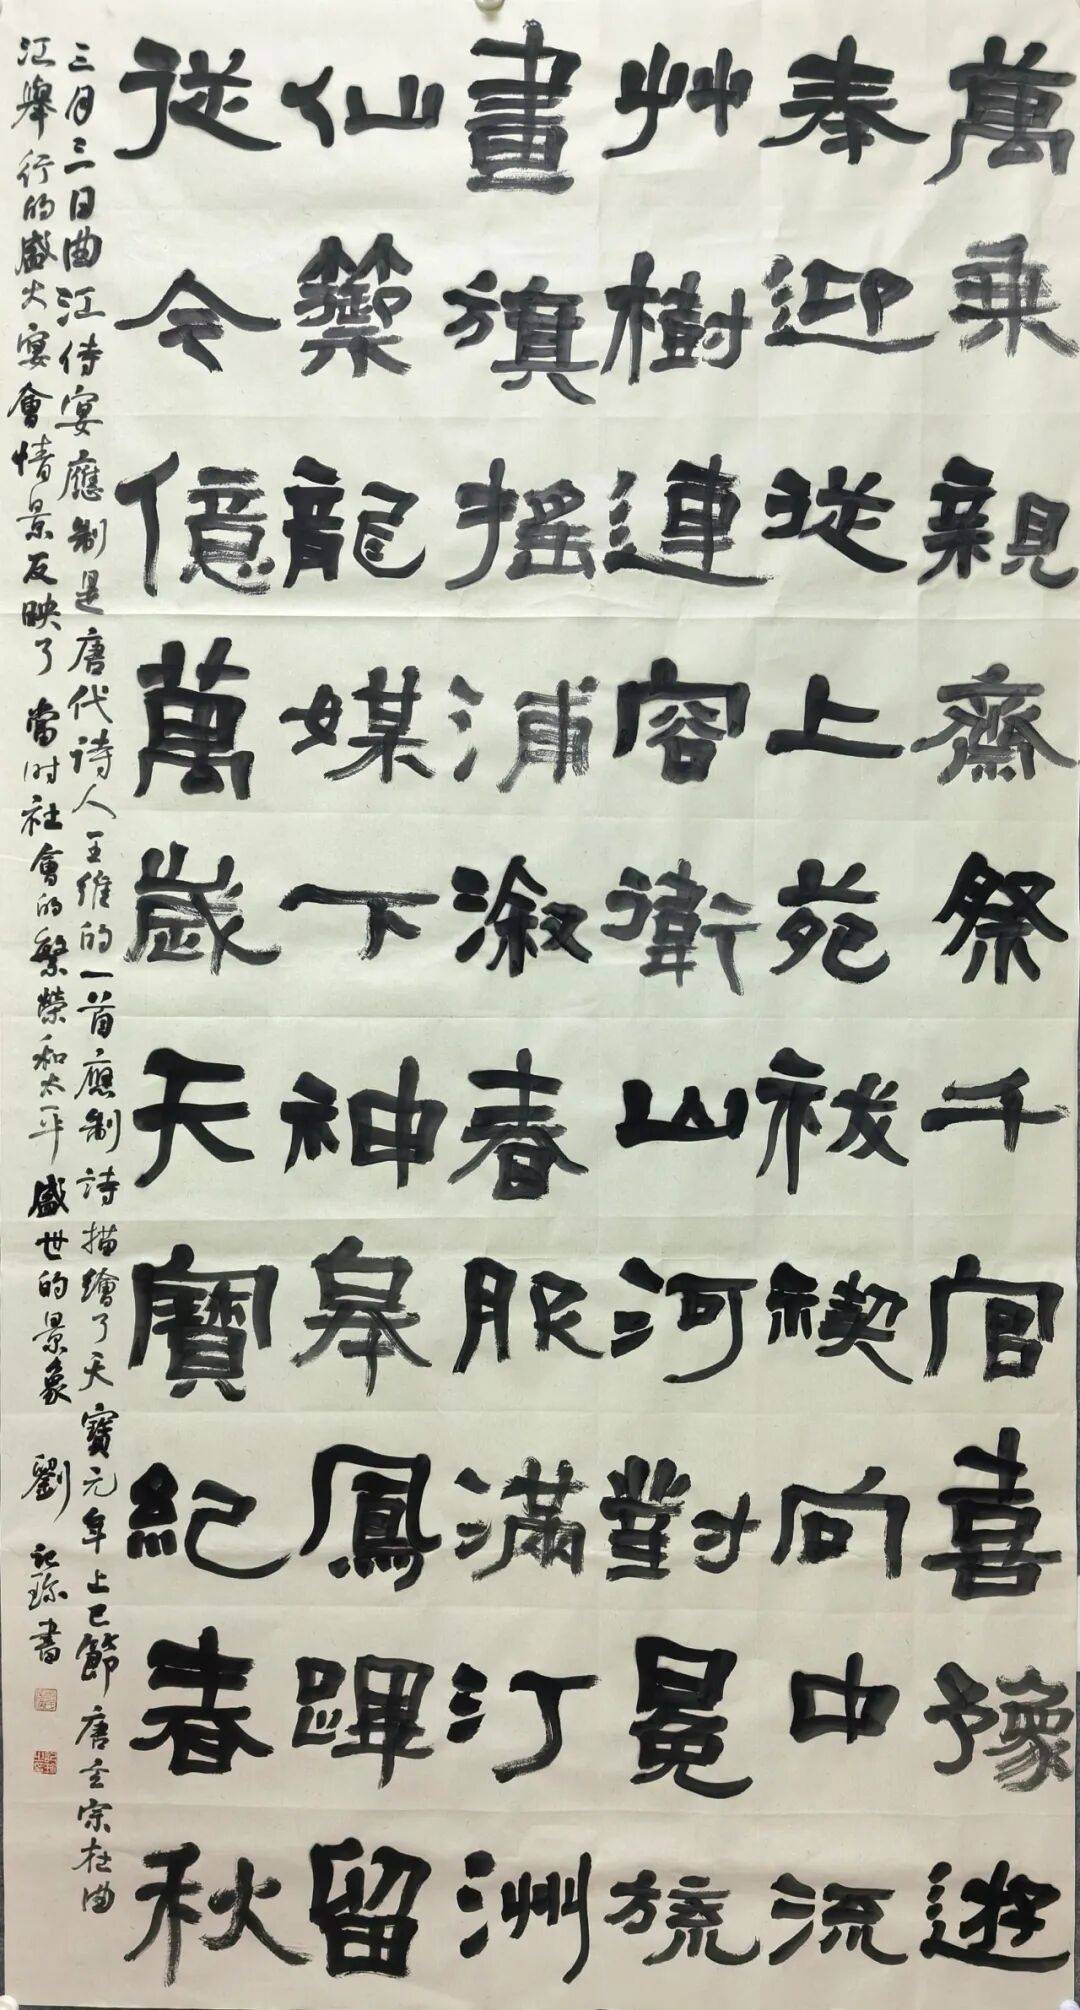 萬乘親齋祭千官喜豫遊
奉迎從上苑祓禊向中流
艸樹連容衛山河對冕旒
畫旗搖浦溆春服滿汀洲
仙籞龍媒下神皋鳳蹕留
從今億萬歲天寶紀春秋
三月三日曲江侍宴應制是唐代诗人王维的一首應制詩描繪了天寶元年上巳節唐玄宗在曲
江舉行的盛大宴會情景反映了當时社會的繁榮和太平盛世的景象 劉 書